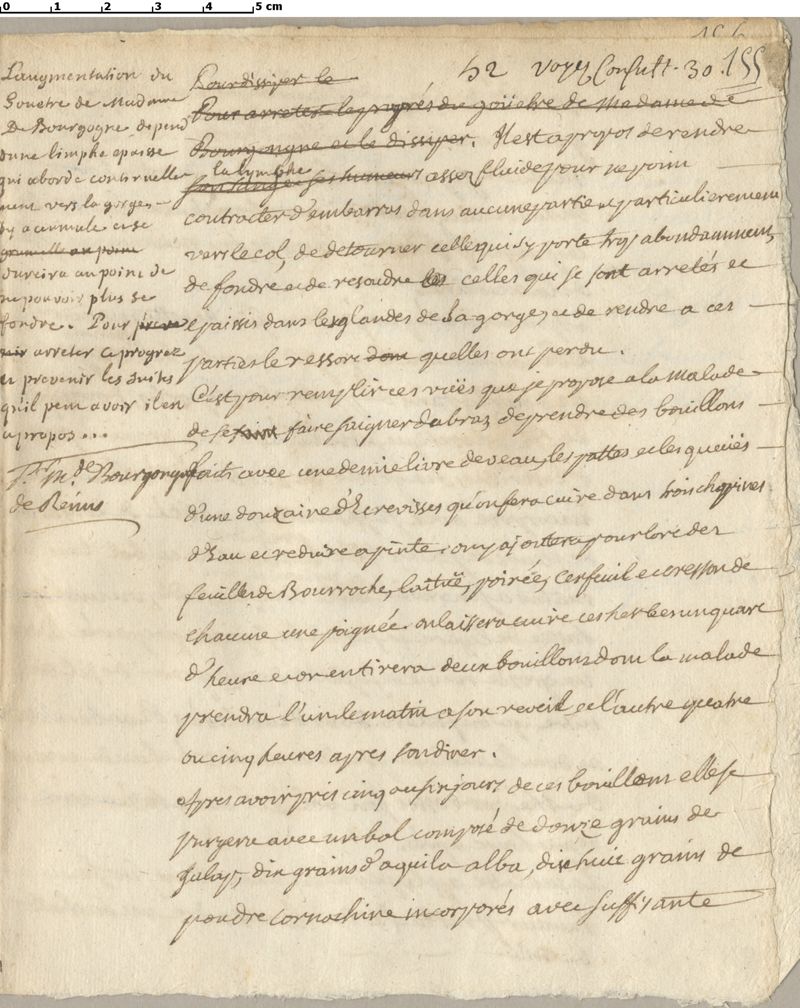 0 1 2 3 4 5 cm
52 voyez Consult. 30. 155
L'augmentation du
Gouetre de Madame
De Bourgogne depend
d'une limphe epaisse
qui aborde continuelle
ment vers la gorge,
s'y acumule et se
grumelle au point
durcira au point de
ne pouvoir plus se
fondre. Pour
arreter ce progrez
et prevenir les suites
qu'il peut avoir il est
a propos...
Pr. Md. de Bourgongne
de Reims
Pour dissiper le
Pour arreter le progrés du goüetre de Madame de
Bourgongne et le dissiper. Il est a propos de rendre
la lymphe
son sang et ses humeurs assez fluide pour ne point
contracter d'embarras dans aucune partie et particulierement
vers le col, de detourner celle qui s'y porte trop abondamment,
de fondre et de resoudre les celles qui se sont arretés et
epaissis dans les glandes de la gorge, et de rendre a ces
parties le ressort dont quelles ont perdu.
C'est pour remplir ces vuës que je propose a la malade
de se faire saigner du bras de prendre des bouillons
faits avec une demie livre de veau, les pattes et les queuës
d'une douzaine d'Ecrevisses qu'on fera cuire dans trois chopines
d'Eau et reduire a pinte, on y ajoutera pour lors des
feuilles de Bourroche, laituë, poirée, cerfeuil et cresson de
chacune une poignée. on laissera cuire ces herbes un quart
d'heure et on en tirera deux bouillons dont la malade
prendra l'un le matin a son reveil et l'autre quatre
ou cinq heures apres son diner.
Apres avoir pris cinq ou six jours de ces bouillons elle se
purgera avec un bol composé de douze grains de
Jalap, dix grains d'aquila alba, dix huit grains de
poudre cornachine incorporés avec suffisante